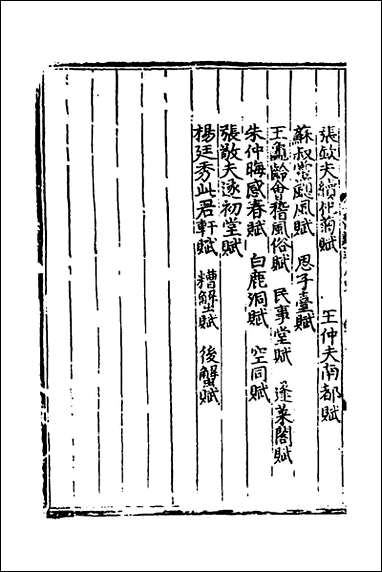 張欽夫續仲菊賦 王仲夫南都賦
蘇叔黨颶風賦 思子臺賦
王龜齡會稽風俗賦 民事堂賦 蓬萊閣賦
朱仲晦感春賦 白鹿洞賦 空同賦
張敬夫遂初堂賦
楊廷秀此君軒賦 糟蟹賦 後蟹賦